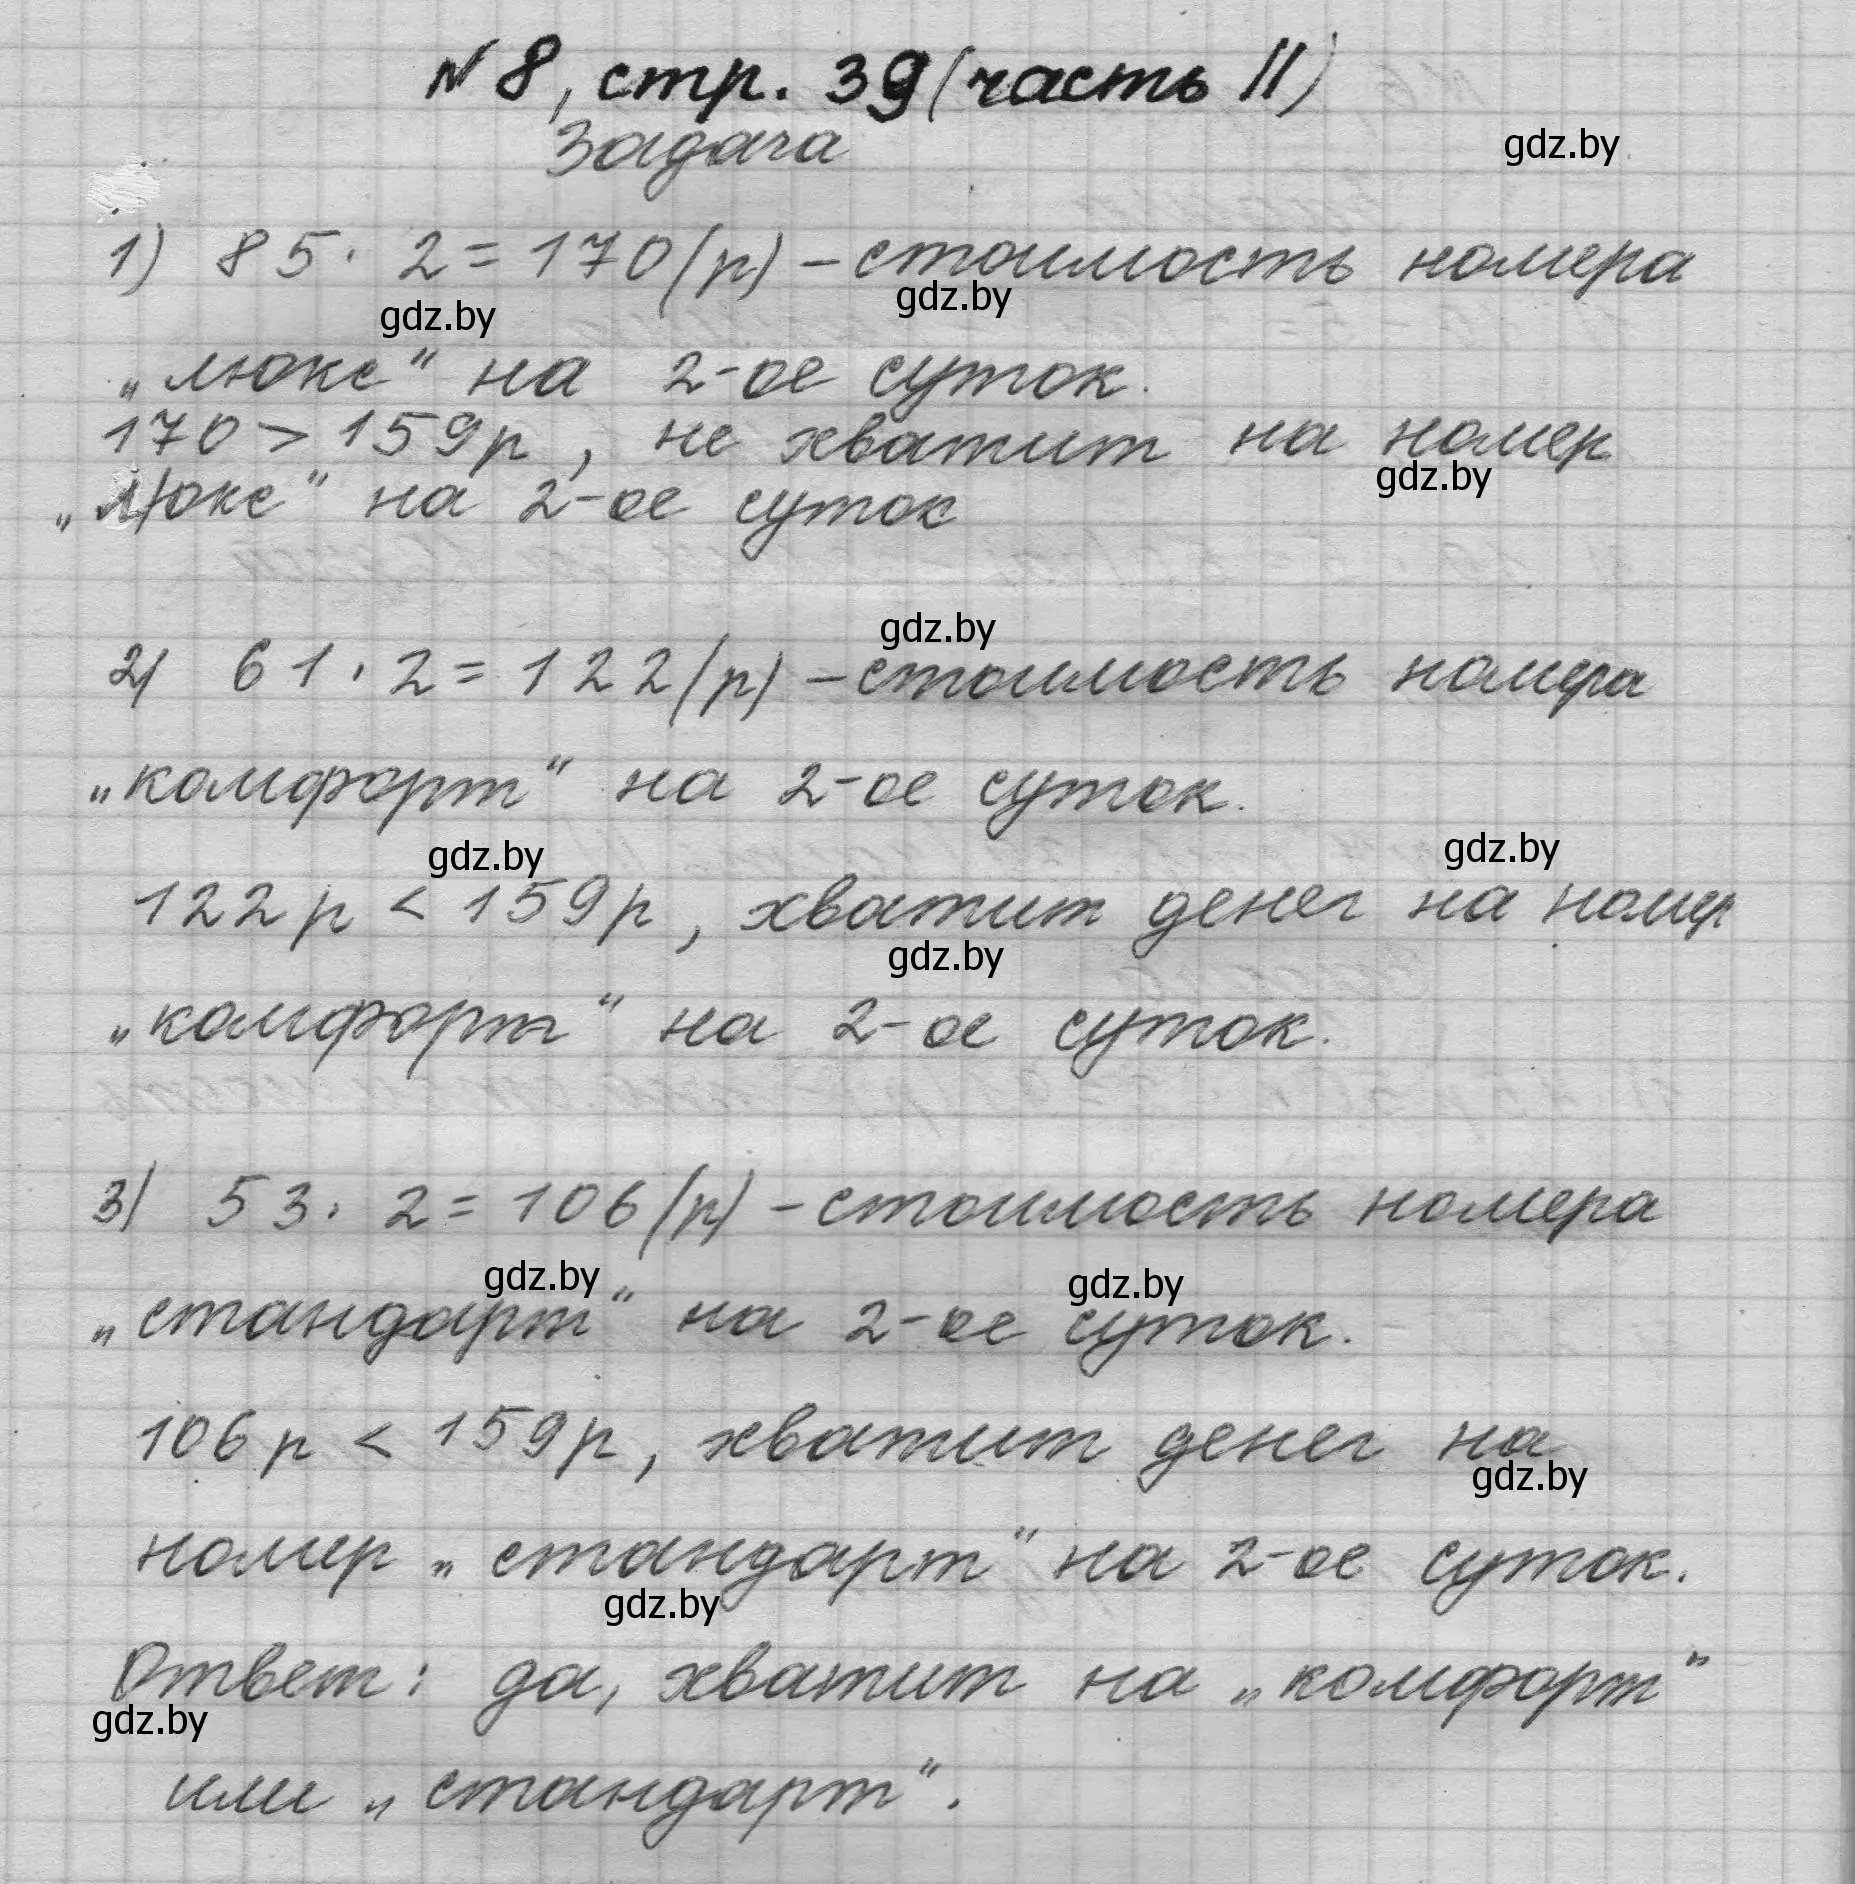 № 8, стр. 39 (часть II)
Задача
gdz.by
1) 85 · 2 = 170 (р) – стоимость номера
gdz.by gdz.by
„люкс“ на 2-ое суток.
170 > 159 р, не хватит на номер
gdz.by
„люкс“ на 2-ое суток
gdz.by
2) 61 · 2 = 122 (р) – стоимость номера
„комфорт“ на 2-ое суток.
gdz.by gdz.by
122 р < 159 р, хватит денег на номер
gdz.by
„комфорт“ на 2-ое суток.
3) 53 · 2 = 106 (р) – стоимость номера
gdz.by gdz.by
„стандарт“ на 2-ое суток.
106 р < 159 р, хватит денег на
gdz.by
номер „стандарт“ на 2-ое суток.
gdz.by
Ответ: да, хватит на „комфорт“
gdz.by
или „стандарт“.